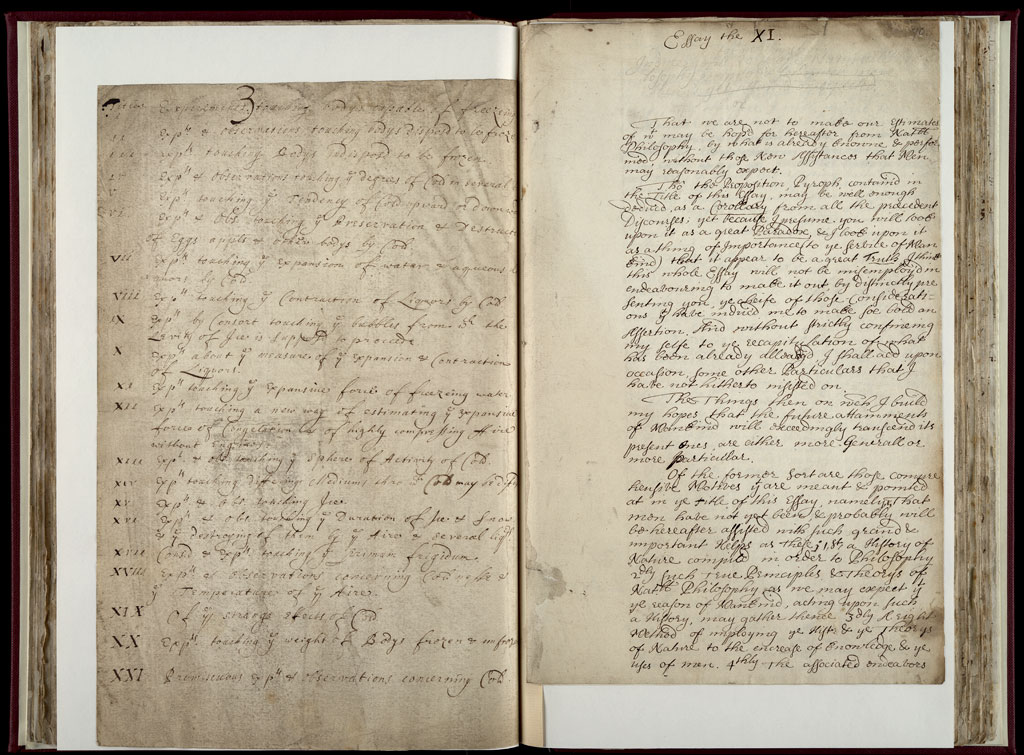 3
Experiments touching Bodys capable of freezing
Expts & observations touching Bodys disposd to be froz
Expts touching Bodys indisposd to be frozen
Expts & observations touching ye degrees of Cold in several
Expts touching ye Tendency of Cold upward or downw
VI Expts & Obs touching ye Preservation & Destruct
of Eggs appls & other bodys by Cold
VII Expts touching ye expansion of water & aqueous
by Cold.
VIII Expts touching ye Contraction of Liquors by Cold
IX Expts by Consort touching ye bubbles from wch the
Levity of Ice is supposd to proceede
X Expts about ye measures of ye expansion & Contraction
of Liquors.
XI Expts touching ye expansive force of freezeing water
XII Expts touching a new way of estimating ye expansive
force of Congelation & of highly compressing Aire
without Engines
XIII Expts & obs touching ye Sphere of Activity of Cold.
XIV Expts touching differing Mediums thro wch Cold may be diff
XV Expts & obs touching Ice
XVI Expts & obs touching ye Duration of Ice & Snow
& ye Destroying of them by ye Aire & severall liqrs
XVII Consid & Expts touching ye Primum frigidum.
XVIII Expts & observations concerning Coldnesse &
ye Temperature of ye Aire
XIX Of ye strange effects of Cold
XX Expts touching ye weight of Bodys frozen & unfroze
XXI Promiscuous Expts & observations concerning Cold
Essay the XI.
That we are not to make our Estimates
of wt may be hop'd for hereafter from Natll
Philosophy, by what is already knowne, & perfor
med without those New Assistances that Men
may reasonably expect.
Tho' the Proposition, Pyroph, containd in
the Title of this Essay, may be well enough
deduc'd, as a Corollary from all the precedent
Discourses; yet because I presume you will look
upon it as a great Paradox, & I look upon it
as a thing of Importance (to ye service of Man
kind) that it appear to be a great Truth, I think
this whole Essay will not be misemployd in
endeavouring to make it out by distinctly pre
senting you, ye cheife of those Considerati-
ons yt have induced me to make soe bold an
Assertion, And without strictly confineing
my selfe to ye recapitulation of what
has been already I shall add upon
occasion, some other Particulars that I
have not hitherto on.
The Things then on wch I build
my hopes that the future attainments
of Mankind will exceedingly transcend its
present ones, are either more Generall or
more particular.
Of the former Sort are those compre
hensive Motives yt are meant & pointed
at in ye title of this Essay, namely, That
men have not yet been & probably will
be hereafter assisted with such grand &
important Helps as these; 1st, a History of
Nature compil'd in order to Philosophy
2dly Such True Principles & Theorys of
Natll Philosophy, as we may expect yt
ye reason of Mankind, acting upon such
a History, may gather thence 3dly A right
Method of imploying ye Hist: & ye Theorys
of Nature to the increase of knowledge & ye
uses of men. 4thly The associated endeavors